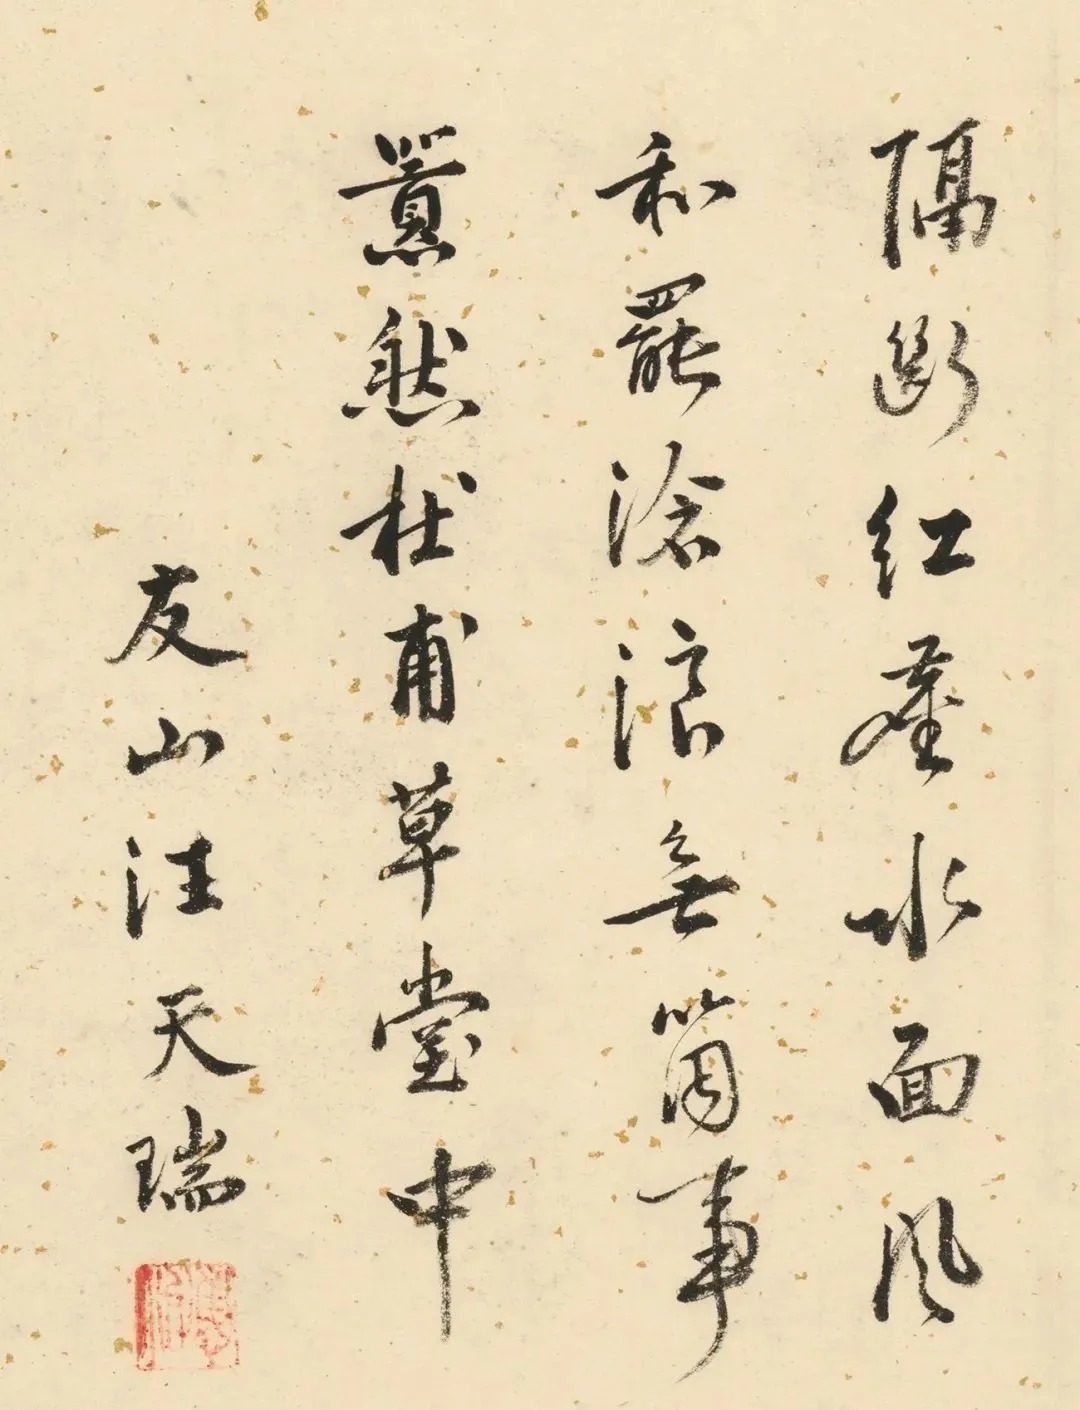 隔斷紅塵水面風
和罷滄浪無箇事
囂然杜甫草堂中
友山汪天瑞